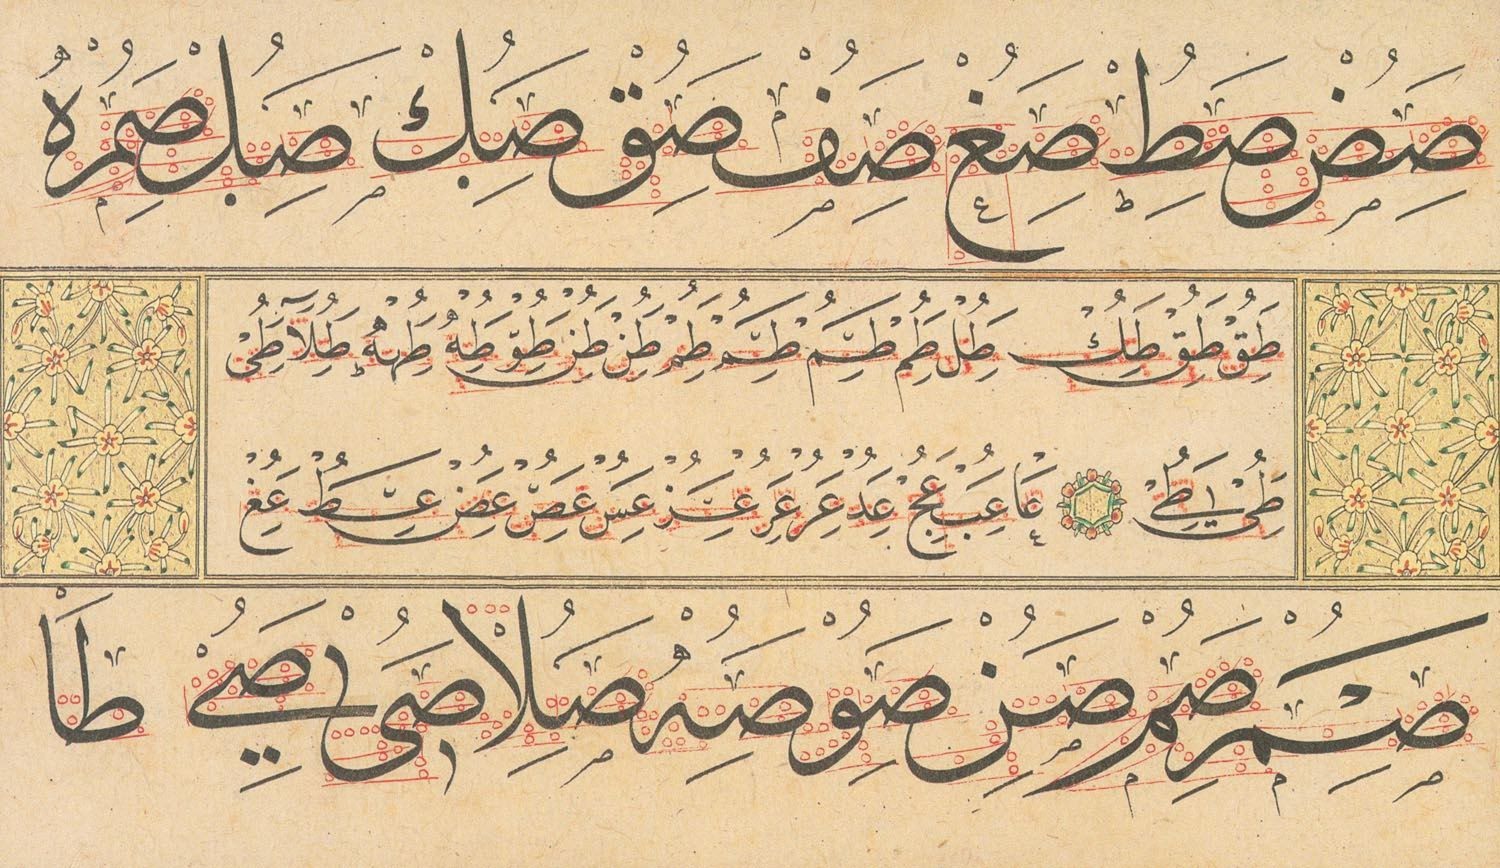 صض صط صغ صف صق صبك صبل صمره
طق طق طك طل طم طم طم طم طن طن طو طه طهه طلا طى
طى طى عا عب عج عد عر عر عر عس عص عض عط عغ
صم صم صن صو صه صلا صى صى طا